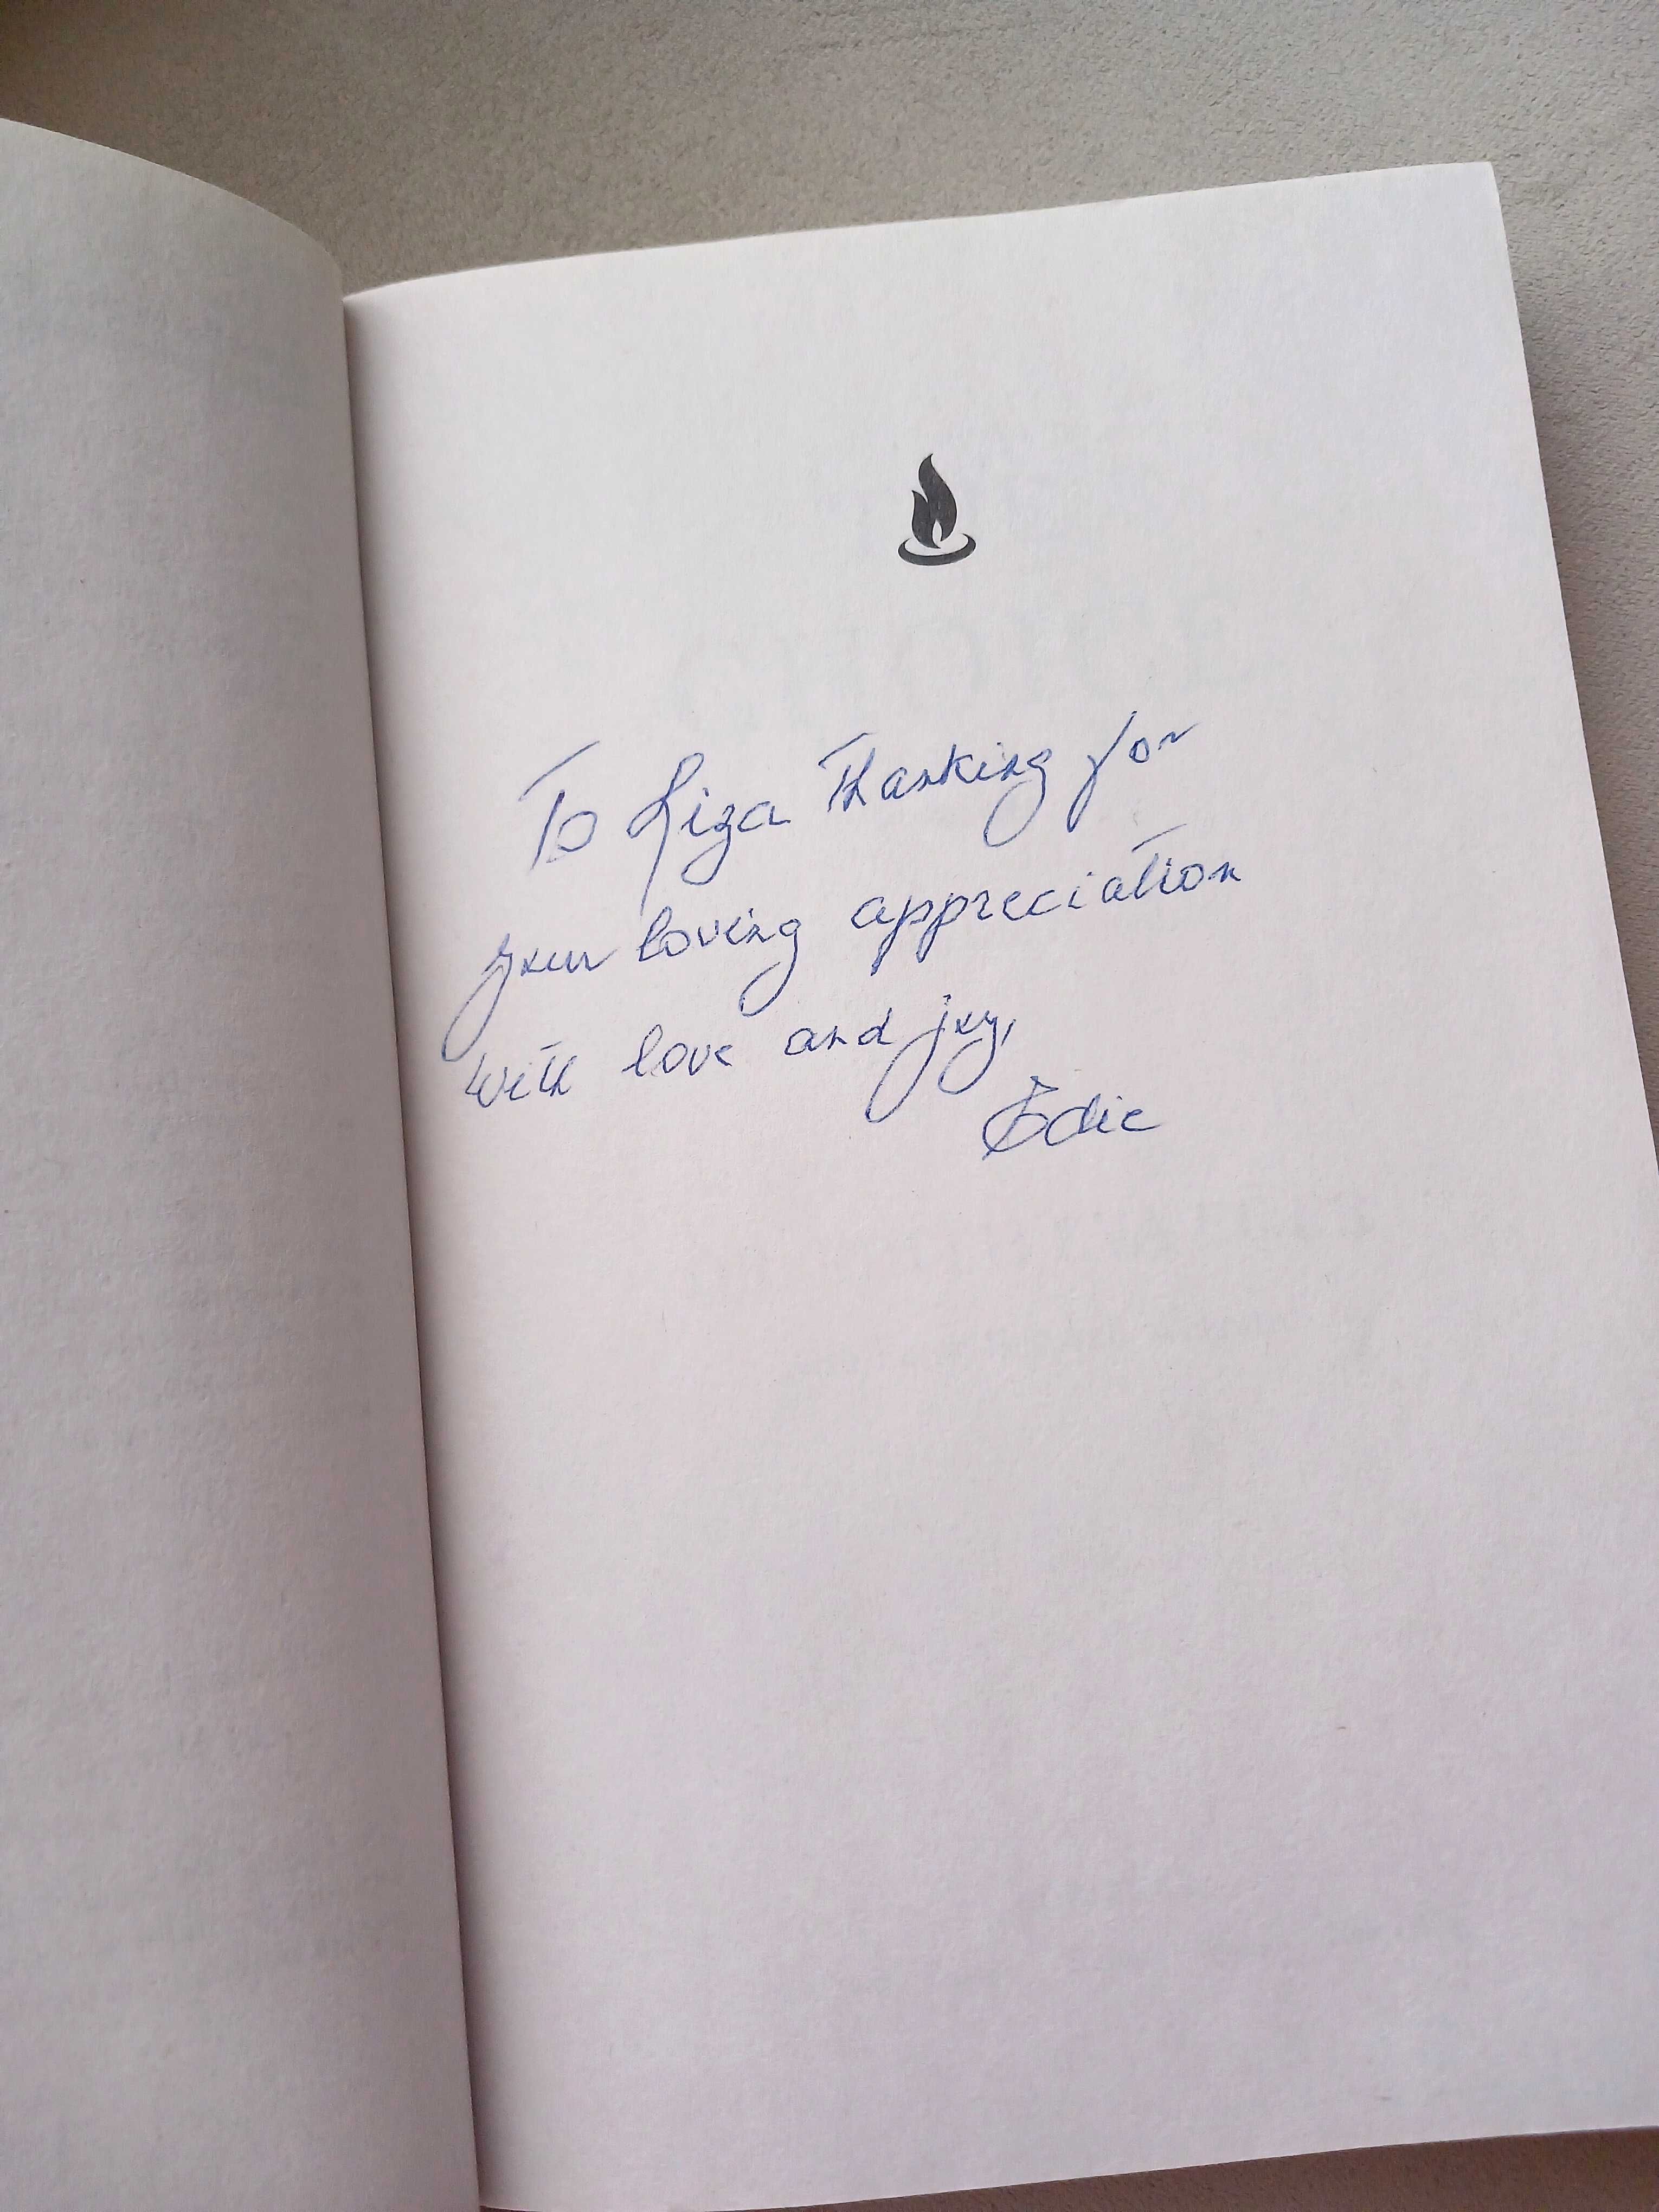 To Liza Thanking for
your loving appreciation
with love and joy,
Edie